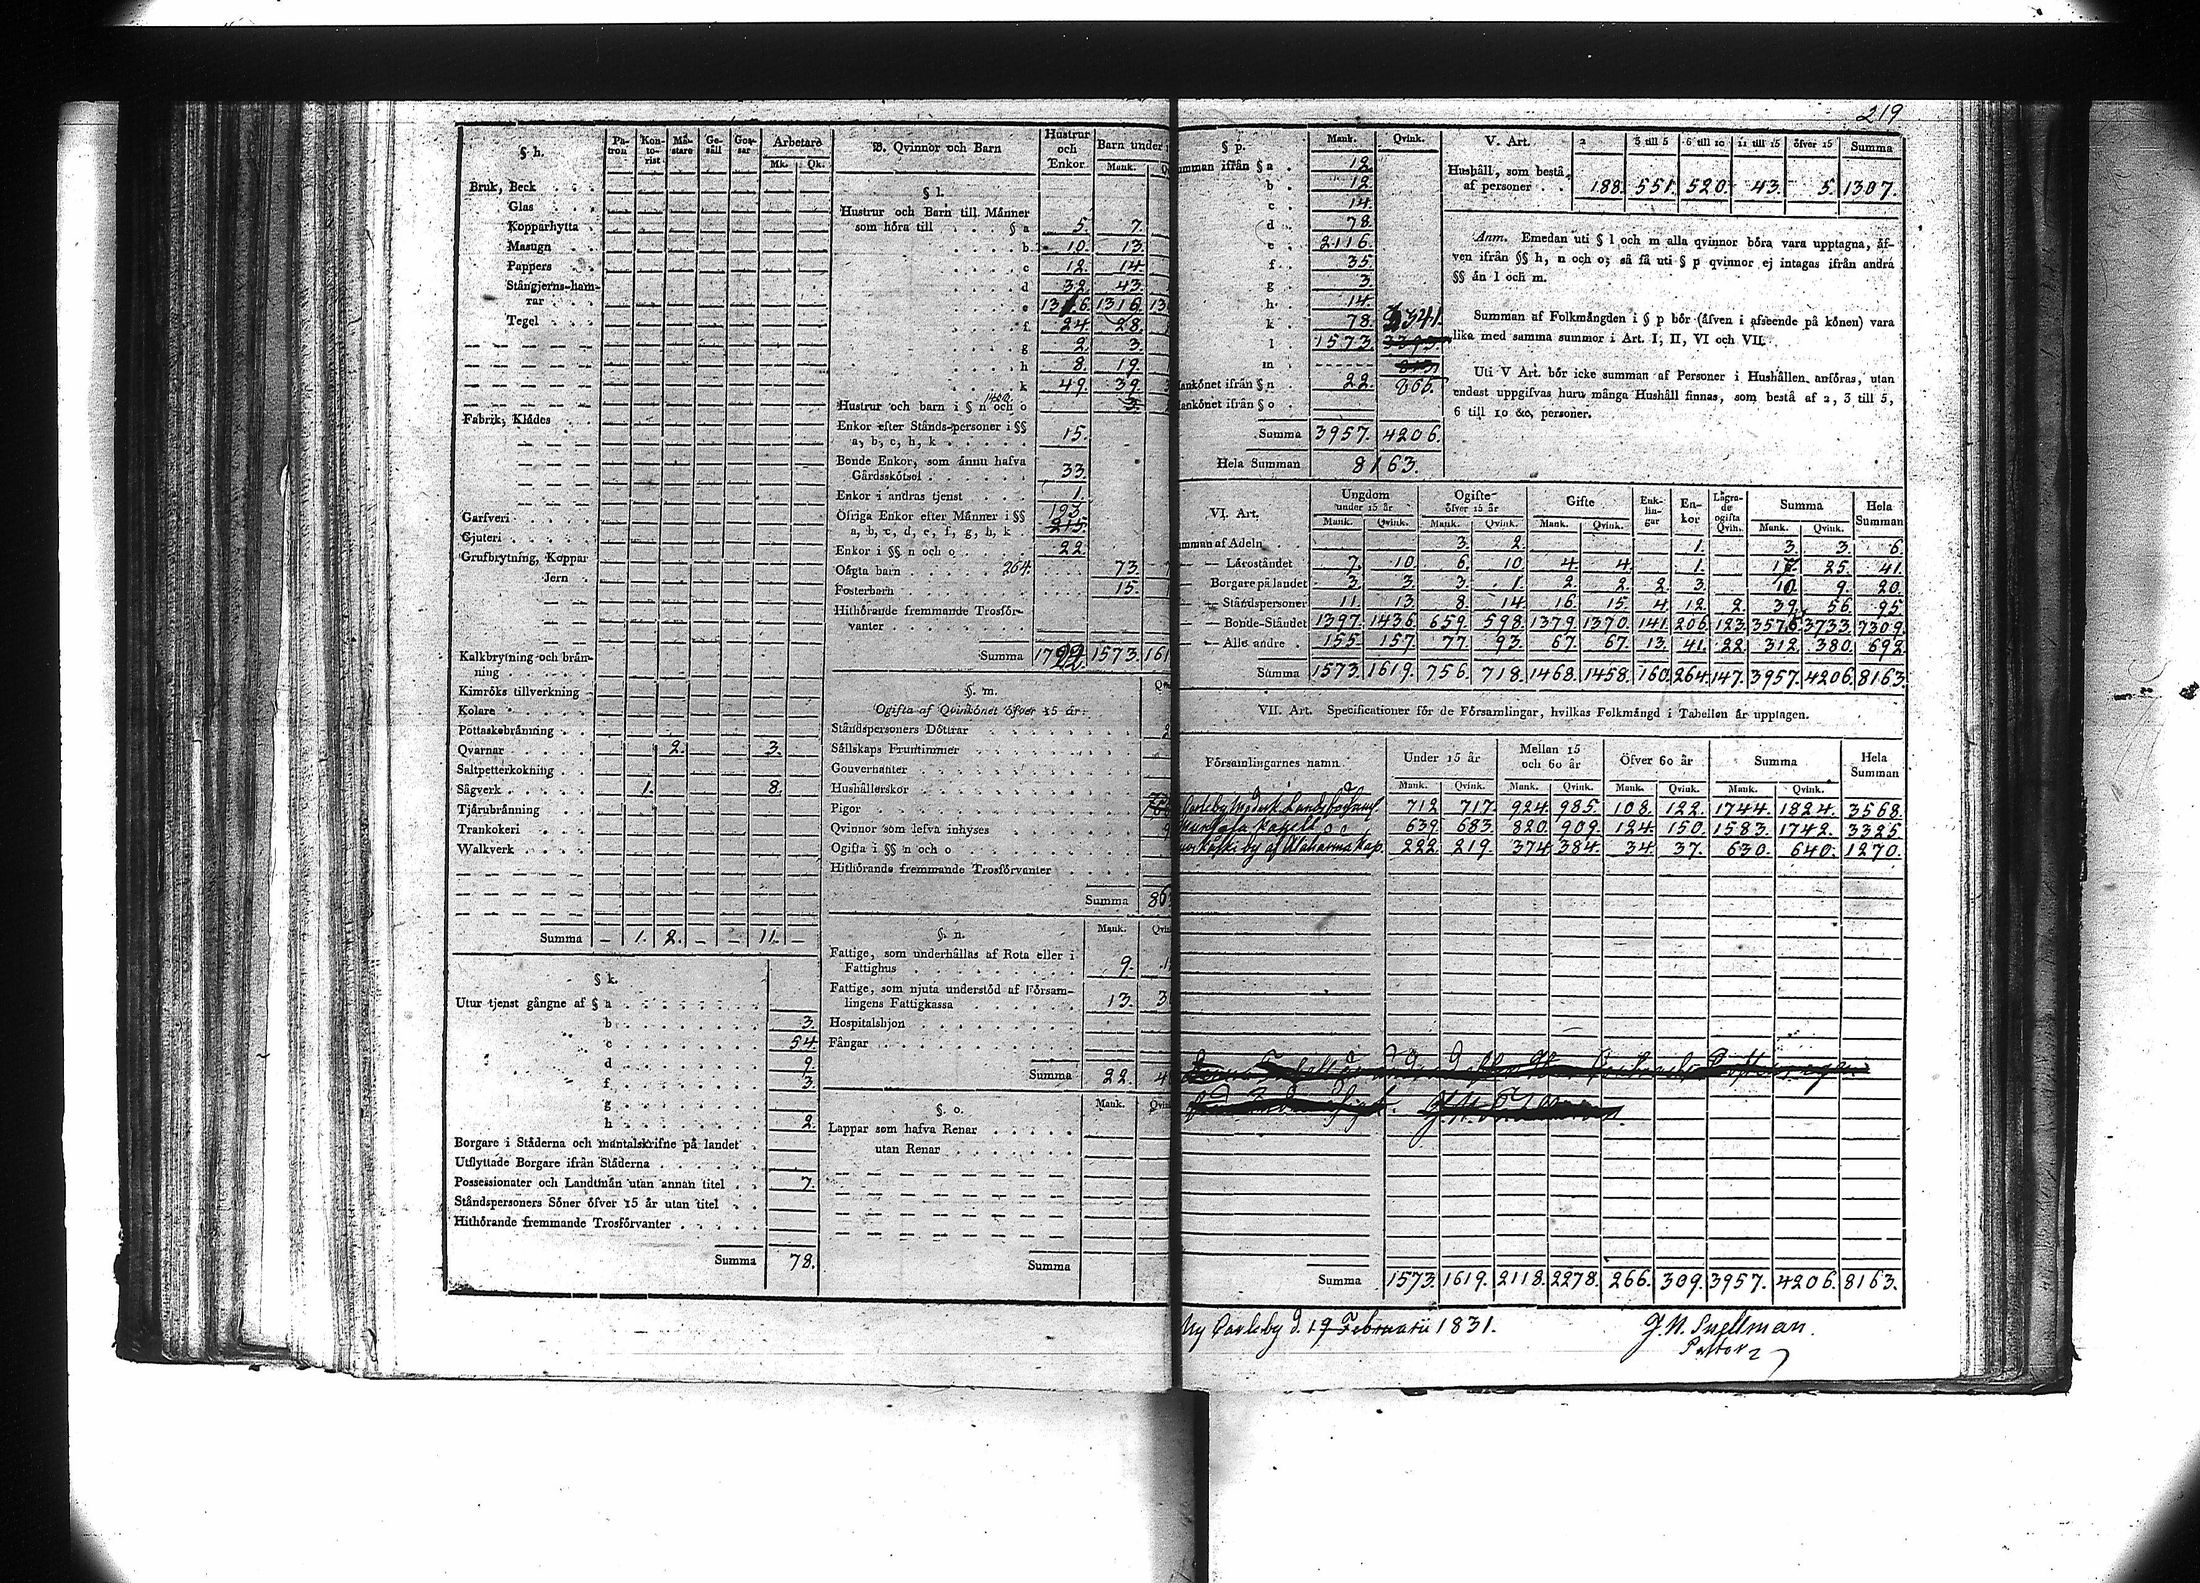 219
§ h. Pa-tron Kon-to-rist Mä-stare Ge-säll Gos-sar Arbetare
Mk. Qk.
Bruk, Beck
Glas
Kopparhytta
Masugn
Pappers
Stångjerns-ham-
rar
Tegel
Fabrik, Klådes
Garfveri
Gjuteri
Grufbrytning, Koppar
Jern
Kalkbrytning och brän-
ning
Kimröks tillverkning
Kolare
Pottaskebränning
Qvarnar 2. 3.
Saltpetterkokning
Sågverk 1. 8.
Tjärubränning
Trankokeri
Walkverk
Summa – 1. 2. – – 11. –
§ k.
Utur tjenst gångne af § a
b 3.
c 54.
d 9.
f 3.
g
h 2.
Borgare i Städerna och mantalskrifne på landet
Utflyttade Borgare ifrån Städerna
Possessionater och Landtmän utan annan titel 7.
Ståndspersoners Söner öfver 15 år utan titel
Hithörande fremmande Trosförvanter
Summa 78.
B. Qvinnor och Barn Hustrur och Enkor. Barn under
Mank.
§ l.
Hustrur och Barn till Männer
som höra till § a 5. 7.
b 10. 13.
c 12. 14.
d 32. 43.
e 1316. 1316. 13
f 24. 28.
g 2. 3.
h 8. 19.
k 49. 39.
Hustrur och barn i § n och o 3.
Enkor efter Stånds-personer i §§
a, b, c, h, k 15.
Bonde Enkor, som ännu hafva
Gårdsskötsel 33.
Enkor i andras tjenst 1.
Öfriga Enkor efter Männer i §§ 193.
a, b, c, d, e, f, g, h, k 215.
Enkor i §§ n och o 22.
Oägta barn 264. 73.
Fosterbarn 15.
Hithörande fremmande Trosför-
vanter
Summa 1722. 1573. 161
§. m.
Ogifta af Qvinkönet öfver 15 år:
Ståndspersoners Döttrar 2
Sällskaps Fruntimmer
Gouvernanter
Hushållerskor
Pigor
Qvinnor som lefva inhyses
Ogifta i §§ n och o
Hithörande fremmande Trosförvanter
Summa 86
§. n. Mank.
Fattige, som underhållas af Rota eller i
Fattighus 9. 1
Fattige, som njuta understöd af Försam-
lingens Fattigkassa 13. 3
Hospitalshjon
Fångar
Summa 22. 4
§. o. Mank.
Lappar som hafva Renar
utan Renar
Summa
§ p. Mank. Qvink.
mman ifrån § a 12.
b 12.
c 14.
d 78.
e 2116.
f 35.
g 3.
h 14.
k 78. 3341.
l 1573. 3393.
m 813.
ankönet ifrån § n 22. 865.
ankönet ifrån § o
Summa 3957. 4206.
Hela Summan 8163.
V. Art. 2 3 till 5 6 till 10 11 till 15 öfver 15 Summa
Hushåll, som bestå
af personer 188. 551. 520. 43. 5. 1307.
Anm. Emedan uti § l och m alla qvinnor böra vara upptagna, äf-
ven ifrån §§ h, n och o; så få uti § p qvinnor ej intagas ifrån andra
§§ än l och m.
Summan af Folkmängden i § p bör (äfven i afseende på könen) vara
lika med samma summor i Art. I, II, VI och VII.
Uti V Art. bör icke summan af Personer i Hushållen anföras, utan
endast uppgifvas huru många Hushåll finnas, som bestå af 2, 3 till 5,
6 till 10 &c, personer.
VI. Art. Ungdom under 15 år Ogifte öfver 15 år Gifte Enk-lin-gar En-kor Lägra-de ogifta Qvin. Summa Hela Summan
Mank. Qvink. Mank. Qvink. Mank. Qvink. Mank. Qvink.
mman af Adeln 3. 2. 1. 3. 3. 6.
— Läroståndet 7. 10. 6. 10. 4. 4. 1. 25. 41.
— Borgare på landet 3. 3. 3. 1. 2. 2. 2. 3. 10. 9. 20.
— Ståndspersoner 11. 13. 8. 14. 16. 15. 4. 12. 2. 39. 56. 95.
— Bonde-Ståndet 1397. 1436. 659. 598. 1379. 1370. 141. 206. 123. 3576. 3733. 7309.
— Alle andre 155. 157. 77. 93. 67. 67. 13. 41. 22. 312. 380. 692.
Summa 1573. 1619. 756. 718. 1468. 1458. 160. 264. 147. 3957. 4206. 8163.
VII. Art. Specificationer för de Församlingar, hvilkas Folkmängd i Tabellen är upptagen.
Församlingarnes namn Under 15 år Mellan 15 och 60 år Öfver 60 år Summa Hela Summan
Mank. Qvink. Mank. Qvink. Mank. Qvink. Mank. Qvink.
Carleby Moderk. Landsförsaml. 712 717. 924. 985. 108. 122. 1744. 1824. 3568.
Munsala Kapell 639. 683. 820. 909. 124. 150. 1583. 1742. 3325.
af Alaharma Kap. 222. 219. 374. 384. 34. 37. 630. 640. 1270.
Summa 1573. 1619. 2118. 2278. 266. 309. 3957. 4206. 8163.
Ny Carleby d. 19 Februarii 1831. J. W. Snellman.
Pastor